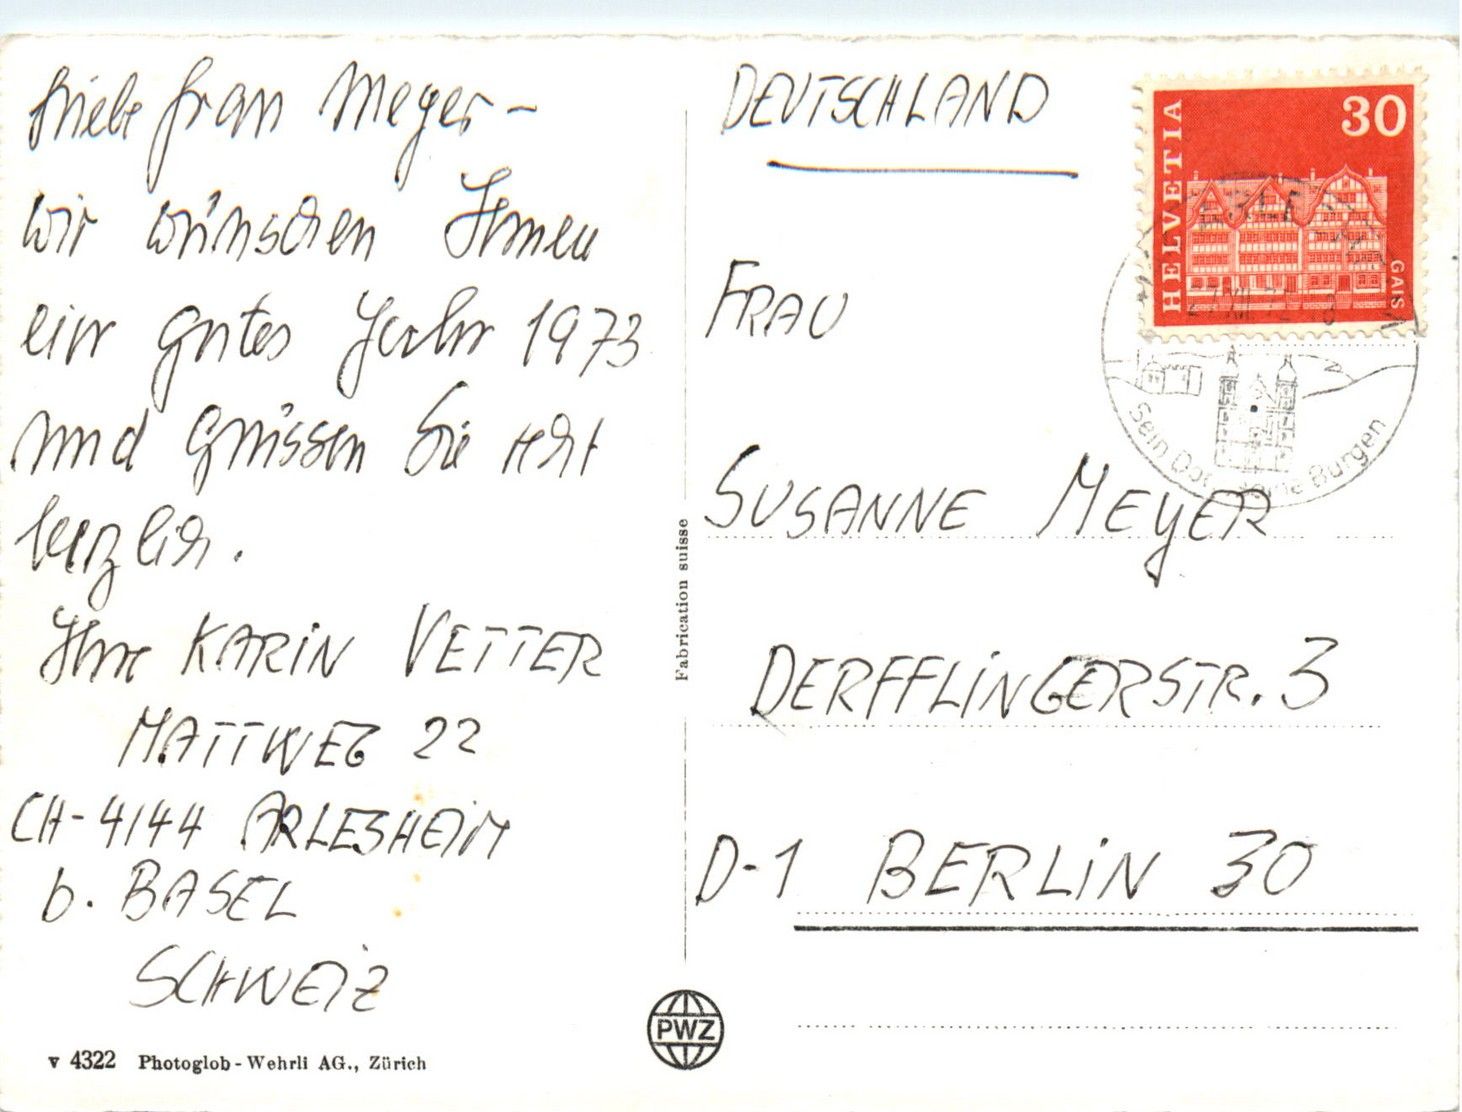 Liebe Frau Meyer –
wir wünschen Ihnen
ein gutes Jahr 1973
und grüssen Sie recht
herzlich.
Ihre KARIN VETTER
MATTWEG 22
CH-4144 ARLESHEIM
b. BASEL
SCHWEIZ
v 4322 Photoglob-Wehrli AG., Zürich
Fabrication suisse
PWZ
DEUTSCHLAND
HELVETIA
30
GAIS
Sein Dom seine Burgen
FRAU
SUSANNE MEYER
DERFFLINGERSTR. 3
D-1 BERLIN 30